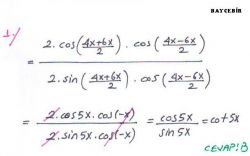 BAYCEBİR
1)
= 2.cos(4x+6x/2) . cos(4x-6x/2)
2.sin(4x+6x/2) . cos(4x-6x/2)
= 2.cos5x.cos(-x) / 2.sin5x.cos(-x) = cos5x / sin5x = cot5x
CEVAP: B